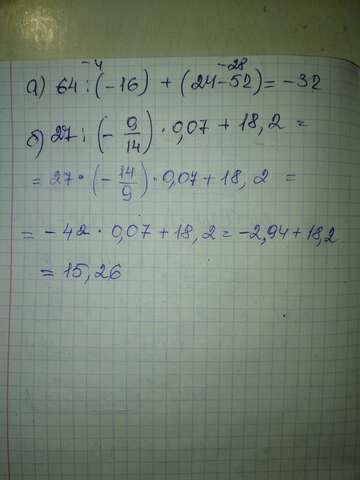 -4 -28
а) 64 : (-16) + (24-52) = -32
б) 27 : (- 9/14) · 0,07 + 18,2 =
= 27 · (- 14/9) · 0,07 + 18,2 =
= -42 · 0,07 + 18,2 = -2,94 + 18,2
= 15,26